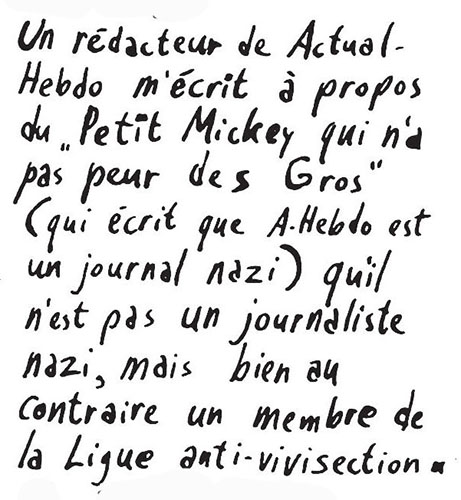 Un rédacteur de Actual-
Hebdo m'écrit à propos
du „Petit Mickey qui n'a
pas peur des Gros"
(qui écrit que A.Hebdo est
un journal nazi) qu'il
n'est pas un journaliste
nazi, mais bien au
contraire un membre de
la Ligue anti-vivisection.